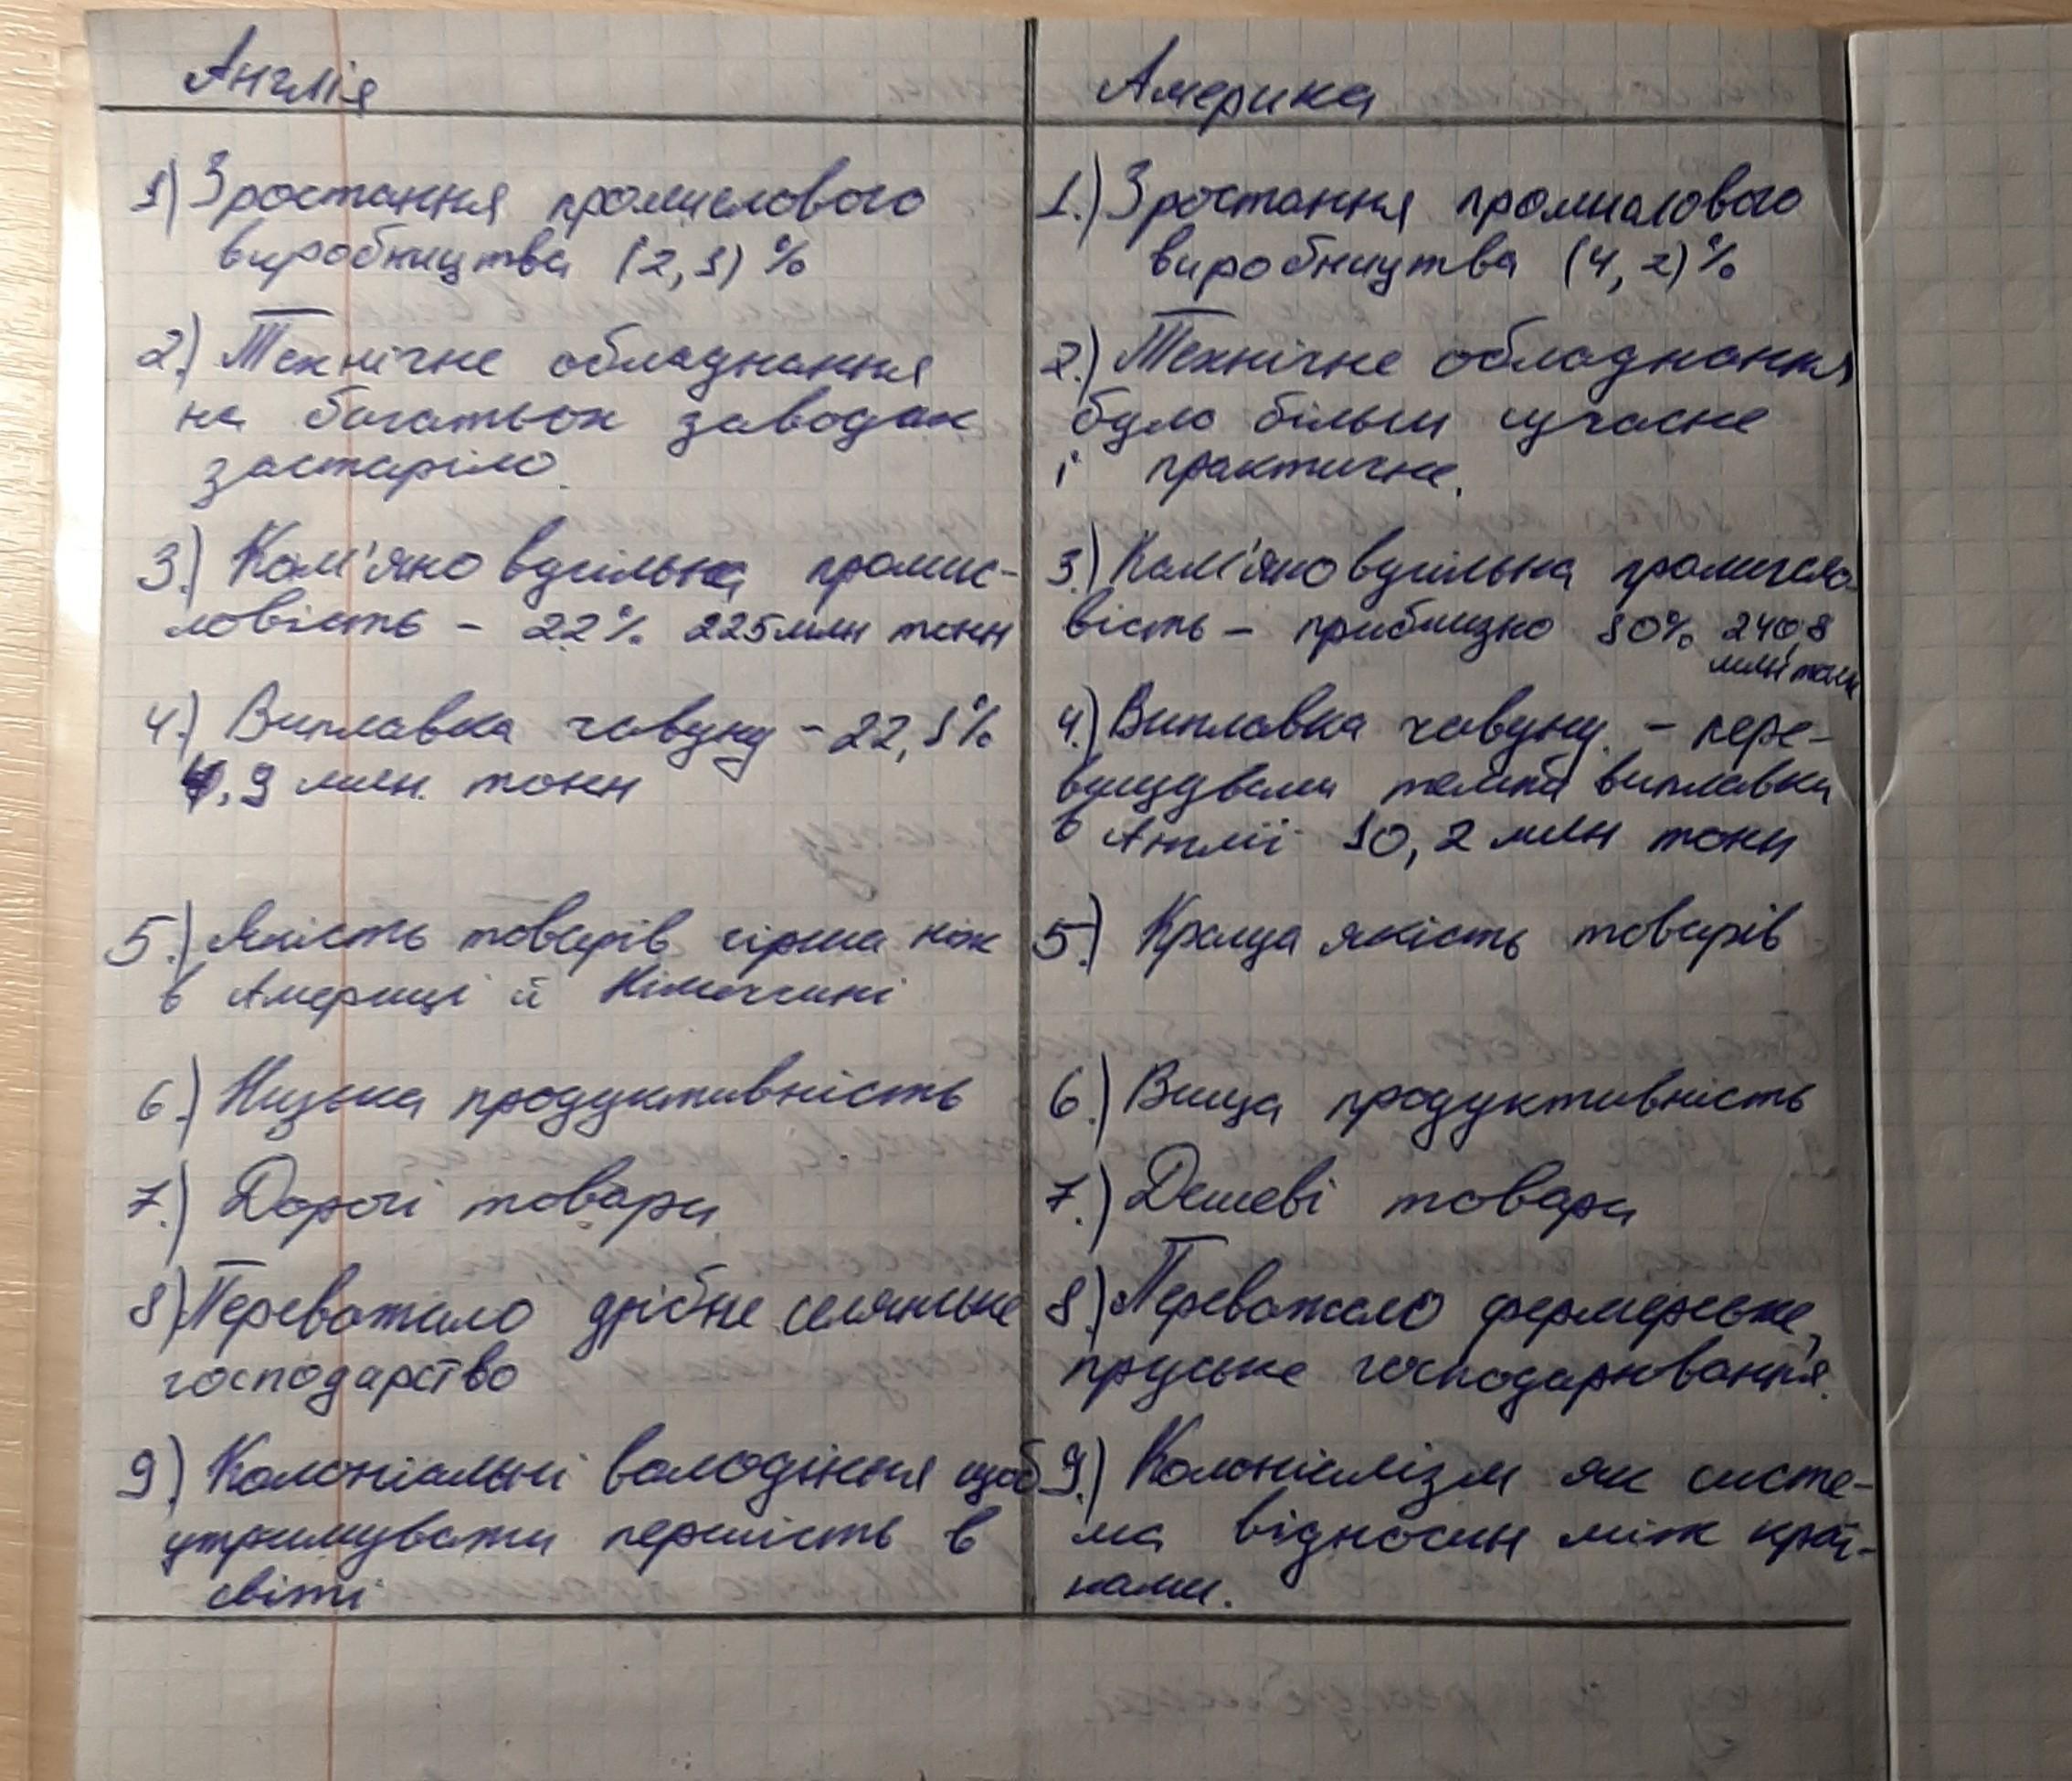 Англія
1) Зростання промислового
виробництва (2,1) %
2.) Технічне обладнання
на багатьох заводах
застаріло.
3.) Кам'яно вугільна промис-
ловість - 22% 225 млн тонн
4.) Виплавка чавуну - 22,1%
4,9 млн. тонн
5.) Якість товарів гірша ніж
в Америці й Німеччині
6.) Низька продуктивність
7.) Дорогі товари
8) Переважало дрібне селянське
господарство
9.) Колоніальні володіння щоб
утримувати першість в
світі
Америка
1.) Зростання промислового
виробництва (4,2) %
2.) Технічне обладнання
було більш сучасне
і практичне.
3.) Кам'яно вугільна промисло-
вість - приблизно 10% 240,8
млн тонн
4.) Виплавка чавуну - пере-
вищували темпа виплавки
в Англії 10,2 млн тонн
5.) Краща якість товарів
6.) Вища продуктивність
7.) Дешеві товари
8.) Переважало фермерське,
пруське господарювання.
9.) Колоніалізм як систе-
ма відносин між краї-
нами.